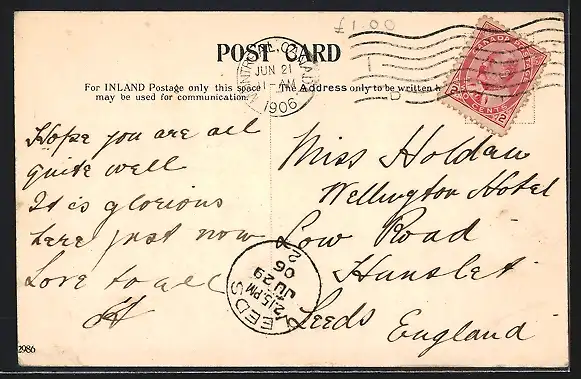 £1.00
POST CARD
For INLAND Postage only this space
may be used for communication.
The Address only to be written h
MONTREAL, CANADA
JUN 21
AM
1906
CANADA POSTAGE
2 CENTS 2
Hope you are all
quite well
It is glorious
here just now
Love to all
Miss Holdan
Wellington Hotel
Low Road
Hunslet
Leeds
England
LEEDS
2.15 PM
JU 29
06
2986